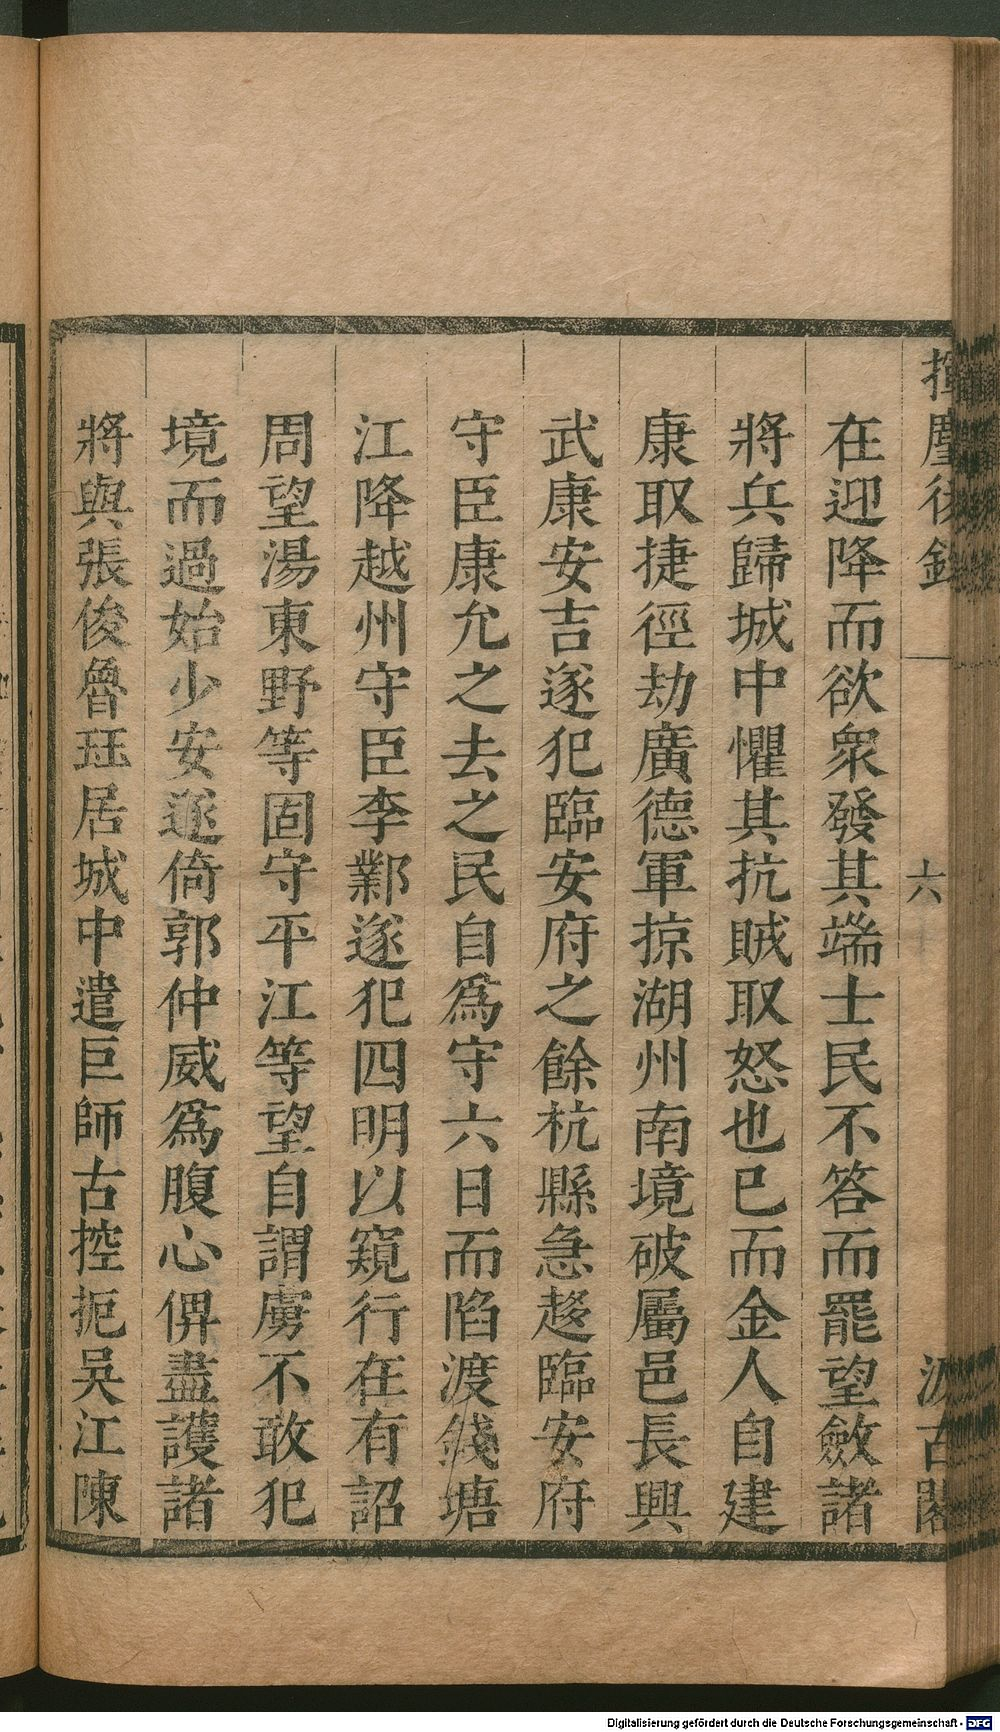 揮麈後錄
六
汲古閣
在迎降而欲衆發其端士民不答而罷望斂諸
將兵歸城中懼其抗賊取怒也已而金人自建
康取捷徑劫廣德軍掠湖州南境破屬邑長興
武康安吉遂犯臨安府之餘杭縣急趍臨安府
守臣康允之去之民自爲守六日而陷渡錢塘
江降越州守臣李鄴遂犯四明以窺行在有詔
周望湯東野等固守平江等望自謂虜不敢犯
境而過始少安遂倚郭仲威爲腹心俾盡護諸
將與張俊魯珏居城中遣巨師古控扼吳江陳
Digitalisierung gefördert durch die Deutsche Forschungsgemeinschaft - DFG